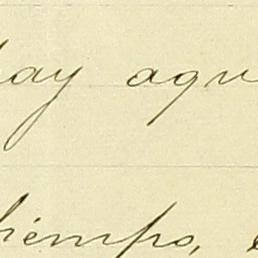 hay aqu
tiempo,